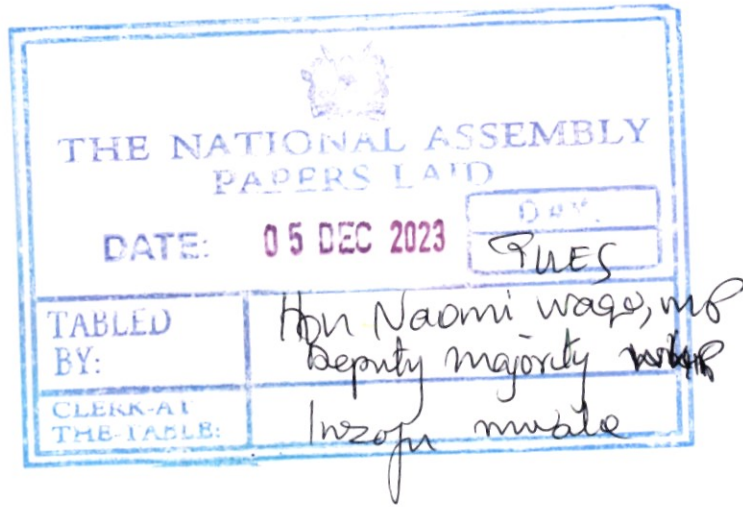 THE NATIONAL ASSEMBLY
PAPERS LAID
DATE: 05 DEC 2023
DAY.
TUES
TABLED BY:
Hon Naomi Waqo, MP
Deputy majority whip
CLERK-AT THE-TABLE:
Inzofu mwale